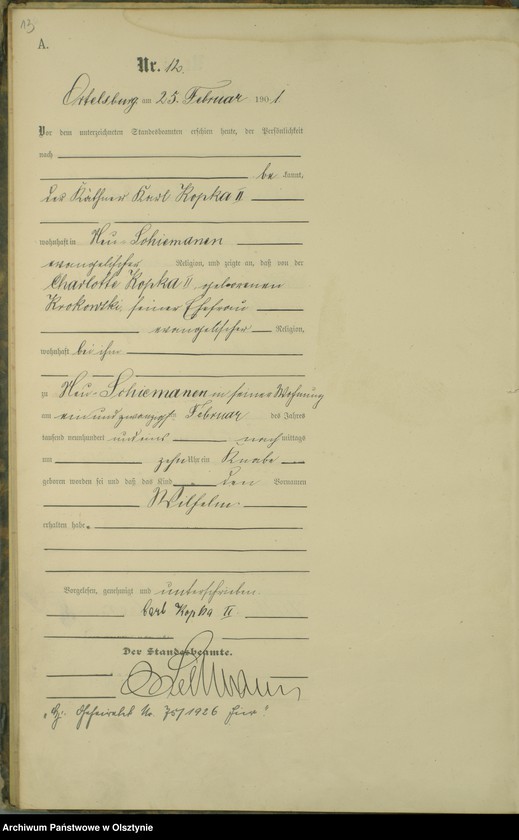 13
A.
Nr. 12.
Ortelsburg am 25. Februar 1901.
Vor dem unterzeichneten Standesbeamten erschien heute, der Persönlichkeit
nach
be kannt,
der Käthner Karl Kopka II
wohnhaft in Neu-Schiemanen
evangelischer Religion, und zeigte an, daß von der
Charlotte Kopka II geborenen
Krokowski, seiner Ehefrau
evangelischer Religion,
wohnhaft bei ihm
zu Neu-Schiemanen in seiner Wohnung
am einundzwanzigst Februar des Jahres
tausend neunhundert und eins nach mittags
um zehn Uhr ein Knabe
geboren worden sei und daß das Kind den Vornamen
Wilhelm
erhalten habe.
Vorgelesen, genehmigt und unterschrieben
Carl Kopka II
Der Standesbeamte.
Nr. 75/1926 hier!
Archiwum Państwowe w Olsztynie